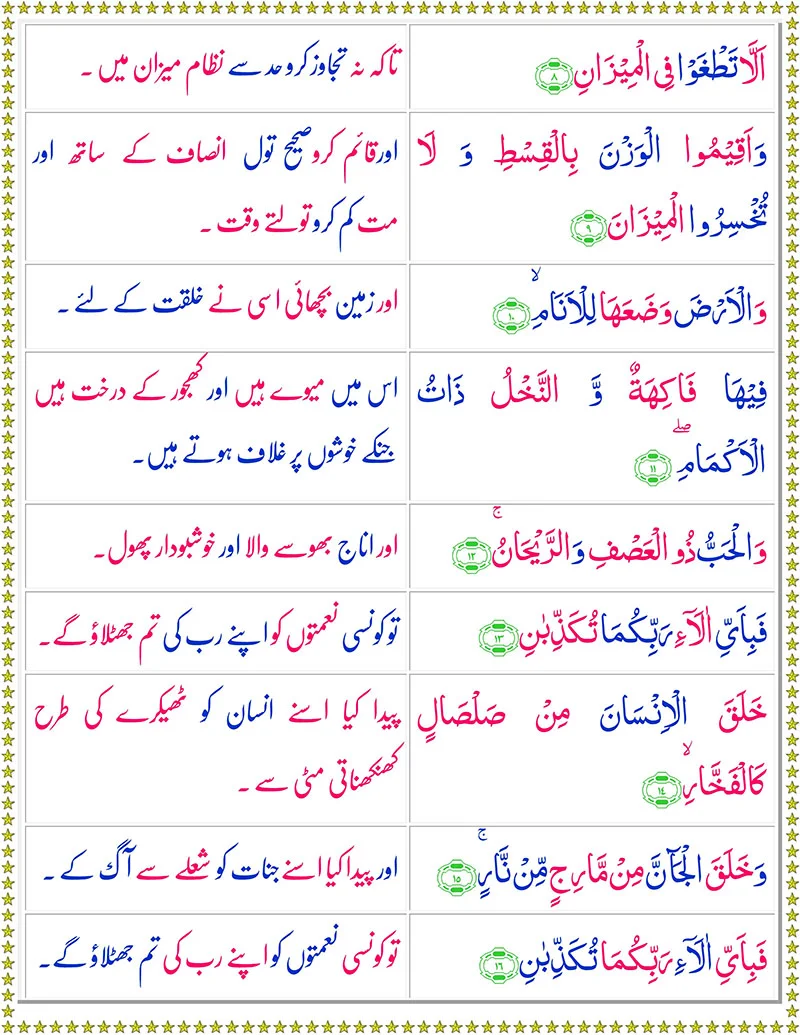 اَلَّا تَطْغَوْا فِی الْمِیْزَانِ ۸
تاکہ نہ تجاوز کرو حد سے نظام میزان میں ۔
وَاَقِیْمُوا الْوَزْنَ بِالْقِسْطِ وَ لَا
تُخْسِرُوا الْمِیْزَانَ ۹
اور قائم کرو صحیح تول انصاف کے ساتھ اور
مت کم کرو تولتے وقت ۔
وَالْاَرْضَ وَضَعَهَا لِلْاَنَامِۙ ۱۰
اور زمین بچھائی اسی نے خلقت کے لئے ۔
فِیْهَا فَاکِهَةٌ وَّ النَّخْلُ ذَاتُ
الْاَکْمَامِۖ ۱۱
اس میں میوے ہیں اور کھجور کے درخت ہیں
جنکے خوشوں پر غلاف ہوتے ہیں۔
وَالْحَبُّ ذُو الْعَصْفِ وَالرَّیْحَانُۚ ۱۲
اور اناج بھوسے والا اور خوشبودار پھول۔
فَبِاَیِّ اٰلَآءِ رَبِّکُمَا تُکَذِّبٰنِ ۱۳
تو کونسی نعمتوں کو اپنے رب کی تم جھٹلاؤ گے۔
خَلَقَ الْاِنْسَانَ مِنْ صَلْصَالٍ
کَالْفَخَّارِۙ ۱٤
پیدا کیا اسنے انسان کو ٹھیکرے کی طرح
کھنکھناتی مٹی سے ۔
وَخَلَقَ الْجَآنَّ مِنْ مَّارِجٍ مِّنْ نَّارٍۚ ۱۵
اور پیدا کیا اسنے جنات کو شعلے سے آگ کے ۔
فَبِاَیِّ اٰلَآءِ رَبِّکُمَا تُکَذِّبٰنِ ۱٦
تو کونسی نعمتوں کو اپنے رب کی تم جھٹلاؤ گے۔